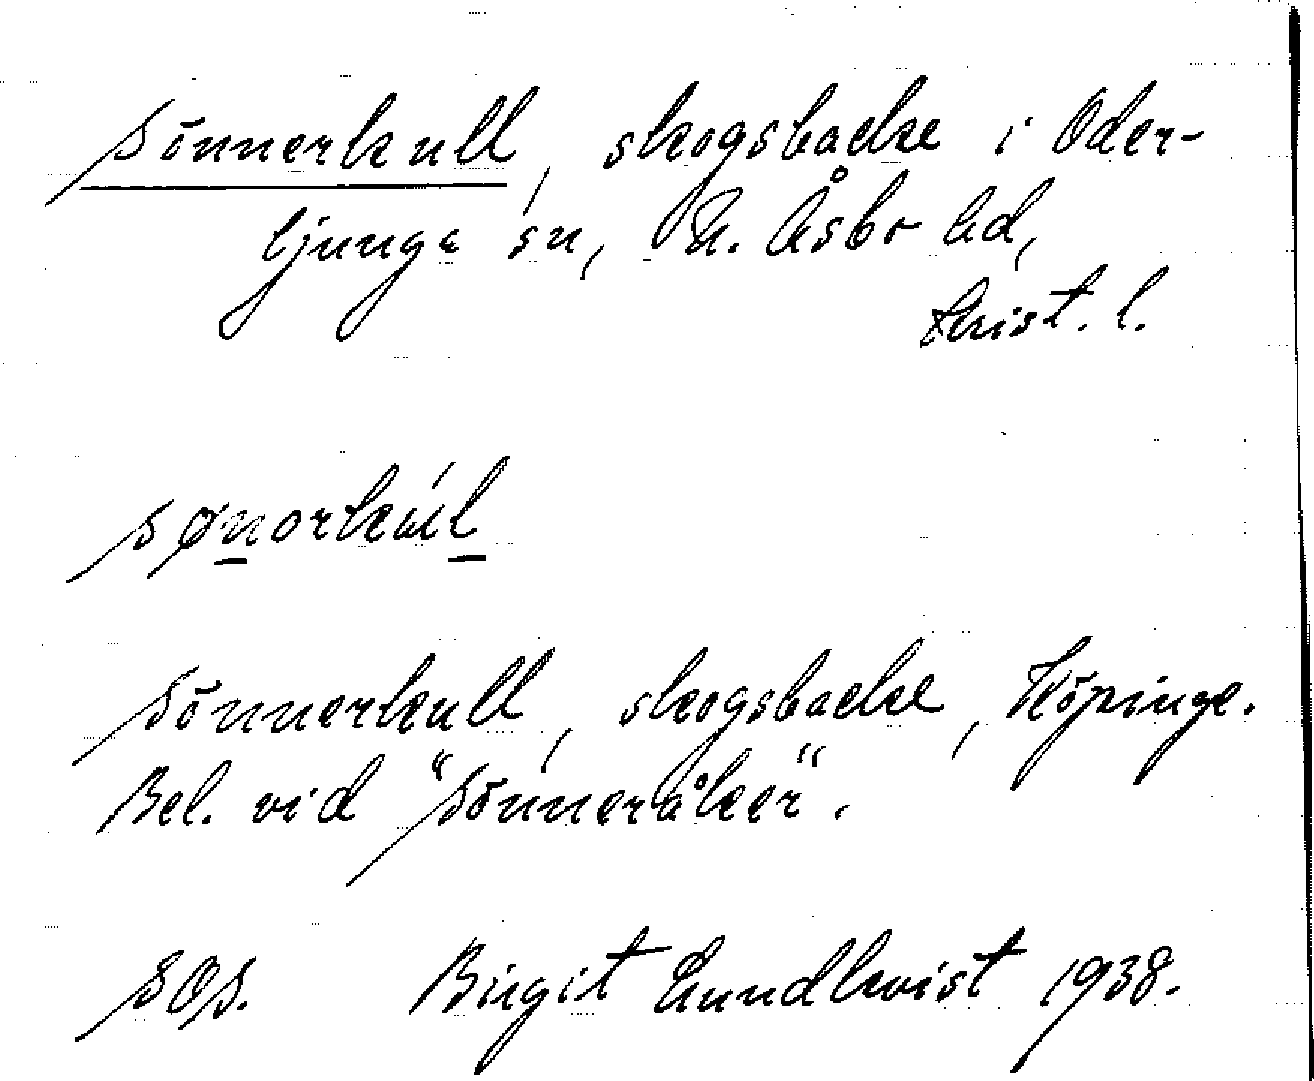 Sönnerkull, skogsbacke i Oder-
ljunga sn, N. Åsbo hd,
Krist. l.
sønorkúl
Sönnerkull, skogsbacke, Köpinge.
Bel. vid "Sönneråker".
SOS. Birgit Lundkvist 1938.